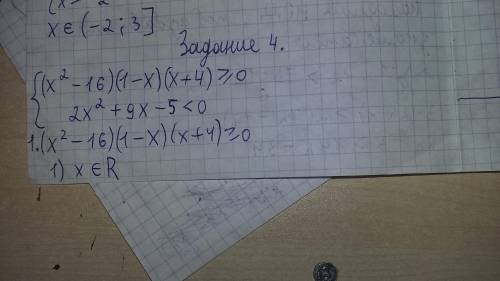 x ∈ (-2 ; 3]
Задание 4.
{(x² - 16)(1 - x)(x + 4) ≥ 0
2x² + 9x - 5 < 0
1. (x² - 16)(1 - x)(x + 4) ≥ 0
1) x ∈ R